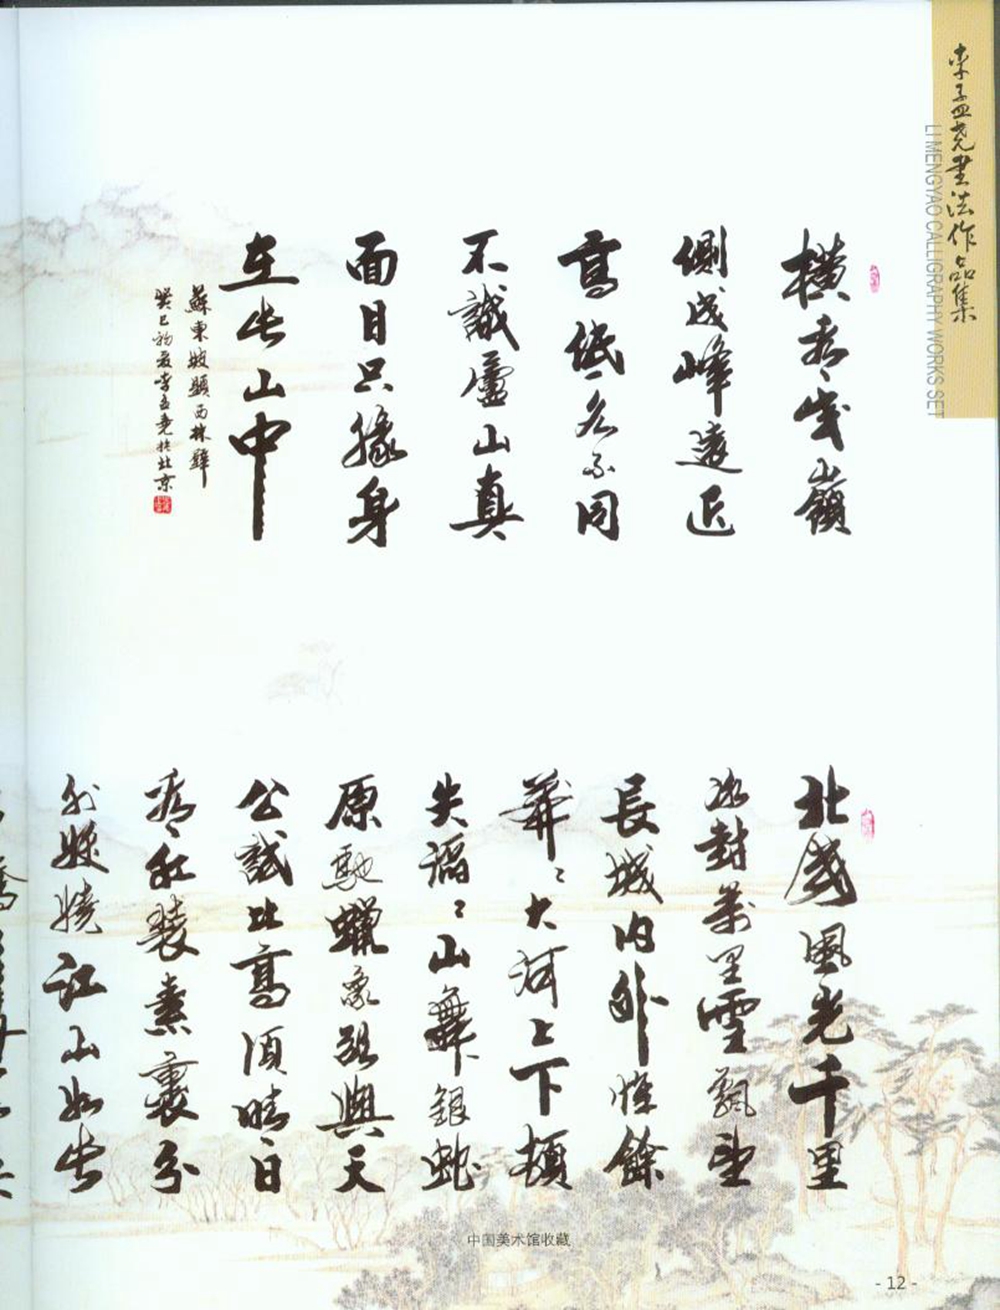 李孟尧书法作品集
LI MENGYAO CALLIGRAPHY WORKS SET
横看成岭
侧成峰远近
高低各不同
不識廬山真
面目只緣身
在此山中
蘇東坡題西林壁
癸巳初夏李孟堯於北京
北國風光千里
冰封萬里雪飄望
長城内外惟餘
莽〻大河上下頓
失滔〻山舞銀蛇
原馳蠟象欲與天
公試比高須晴日
看紅裝素裹分
外妖嬈江山如此
中国美术馆收藏
- 12 -